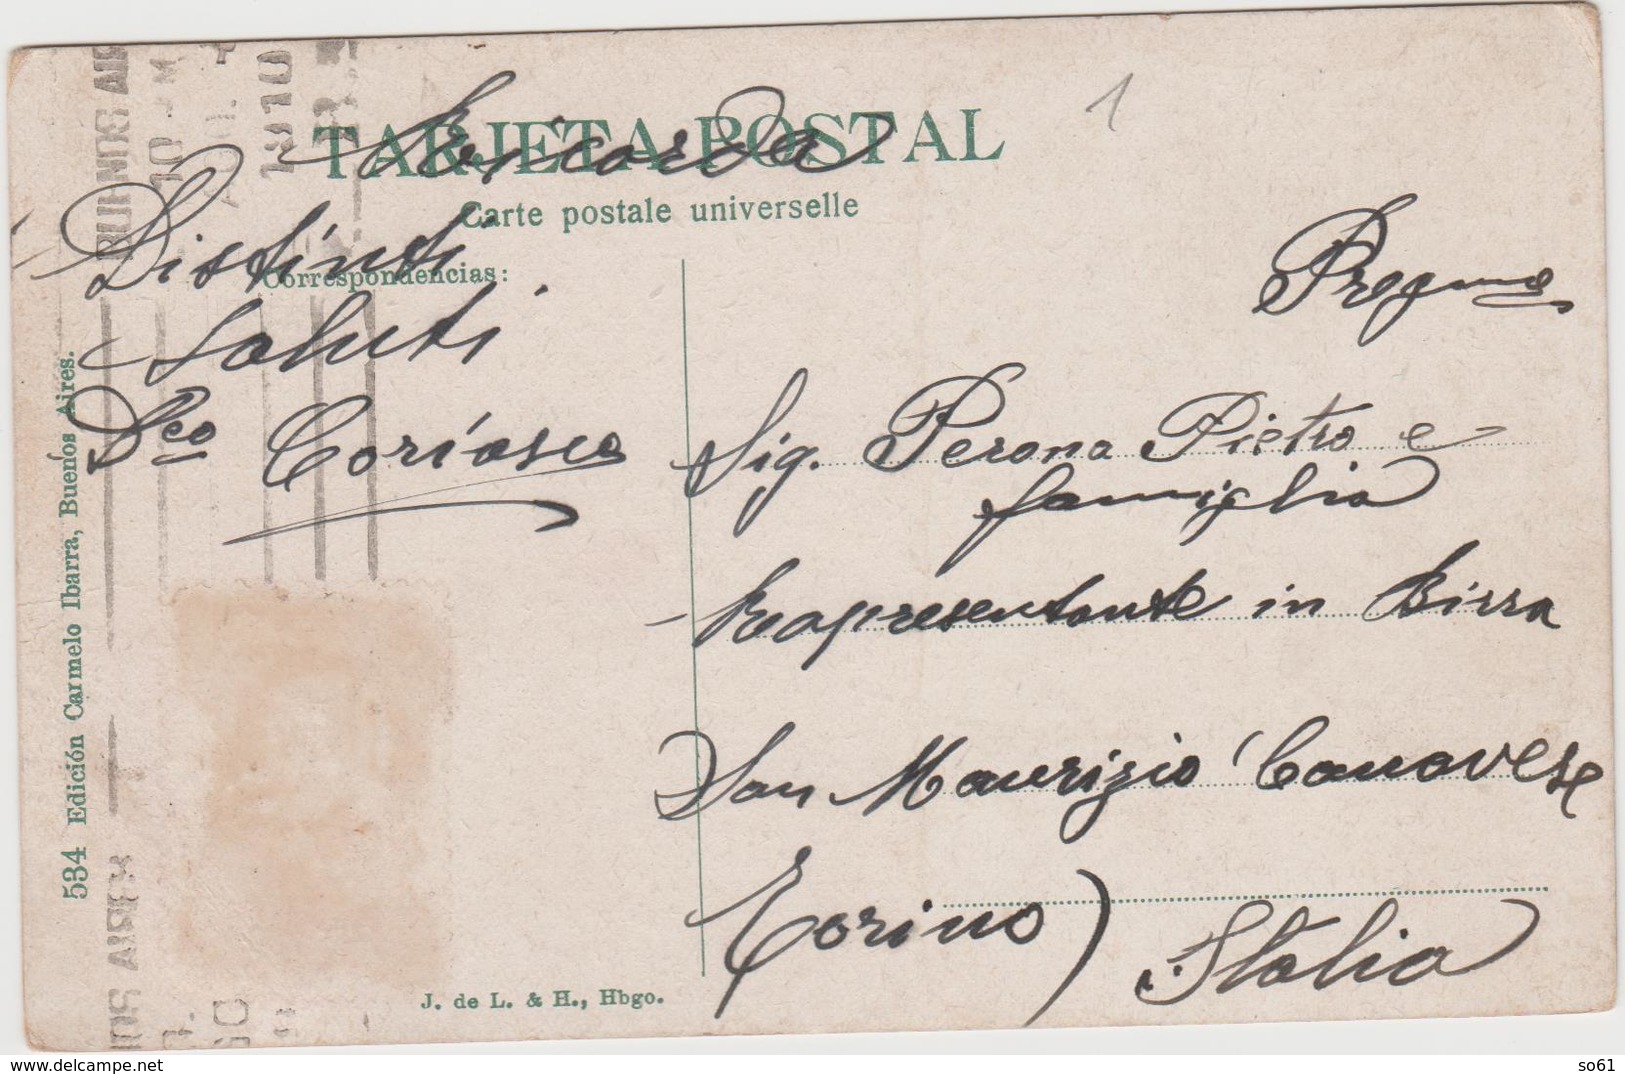 TARJETA POSTAL
Carte postale universelle
Correspondencias:
1
Ricorda
Distinti
Saluti
Dco Coriasco
Pregmo
Sig. Perona Pietro e
famiglia
Rappresentante in Birra
San Maurizio Canavese
Torino)
Italia
534 Edición Carmelo Ibarra, Buenos Aires.
J. de L. & H., Hbgo.
BUENOS AIR
10 - M
1910
OS AIRES
www.delcampe.net
so61